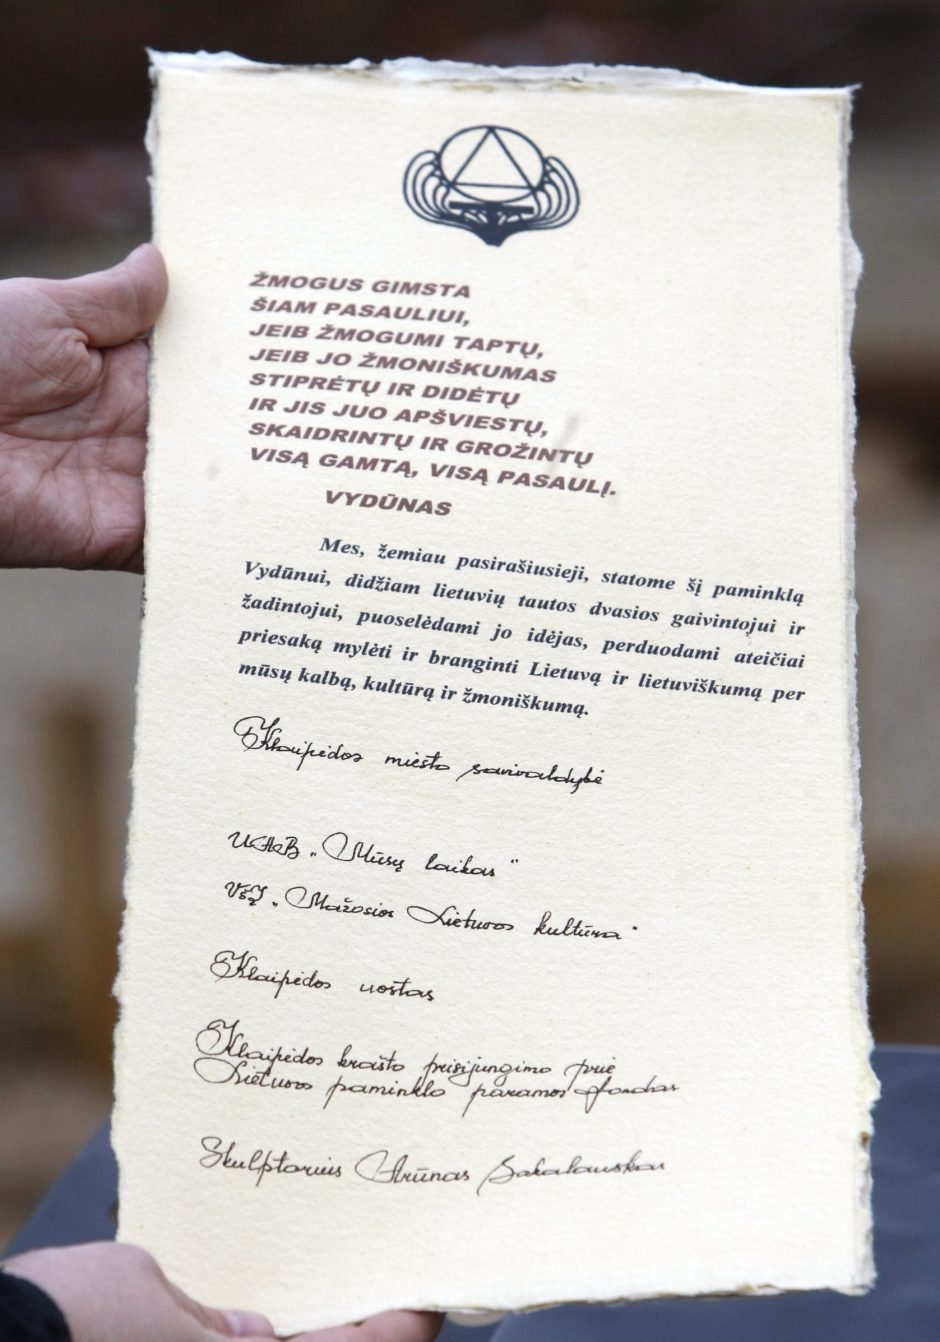 ŽMOGUS GIMSTA
ŠIAM PASAULIUI,
JEIB ŽMOGUMI TAPTŲ,
JEIB JO ŽMONIŠKUMAS
STIPRĖTŲ IR DIDĖTŲ
IR JIS JUO APŠVIESTŲ,
SKAIDRINTŲ IR GROŽINTŲ
VISĄ GAMTĄ, VISĄ PASAULĮ.
VYDŪNAS
Mes, žemiau pasirašiusieji, statome šį paminklą
Vydūnui, didžiam lietuvių tautos dvasios gaivintojui ir
žadintojui, puoselėdami jo idėjas, perduodami ateičiai
priesaką mylėti ir branginti Lietuvą ir lietuviškumą per
mūsų kalbą, kultūrą ir žmoniškumą.
Klaipėdos miesto savivaldybė
UAB „Mūsų laikas"
VšĮ „Mažosios Lietuvos kultūra"
Klaipėdos uostas
Klaipėdos krašto prisijungimo prie
Lietuvos paminklo paramos fondas
Skulptorius Arūnas Sakalauskas